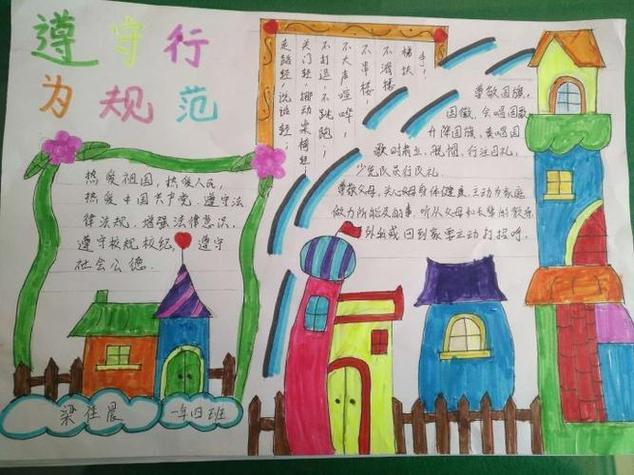 遵守行
为规范
热爱祖国，热爱人民，
热爱中国共产党，遵守法
律法规，增强法律意识。
遵守校规校纪，遵守
社会公德。
梁佳晨
一年四班
手；
梯扶
不滑楼
不串楼，
不大声喧哗；
不打逗，不跳跑；
关门轻，挪动桌椅轻；
走路轻，说话轻；
尊敬国旗，
国徽，会唱国歌
升降国旗，奏唱国
歌时肃立，脱帽，行注目礼，
少先队员行队礼。
尊敬父母，关心父母身体健康，主动为家庭
做力所能及的事，听从父母和长辈的教导
外出或回到家要主动打招呼。